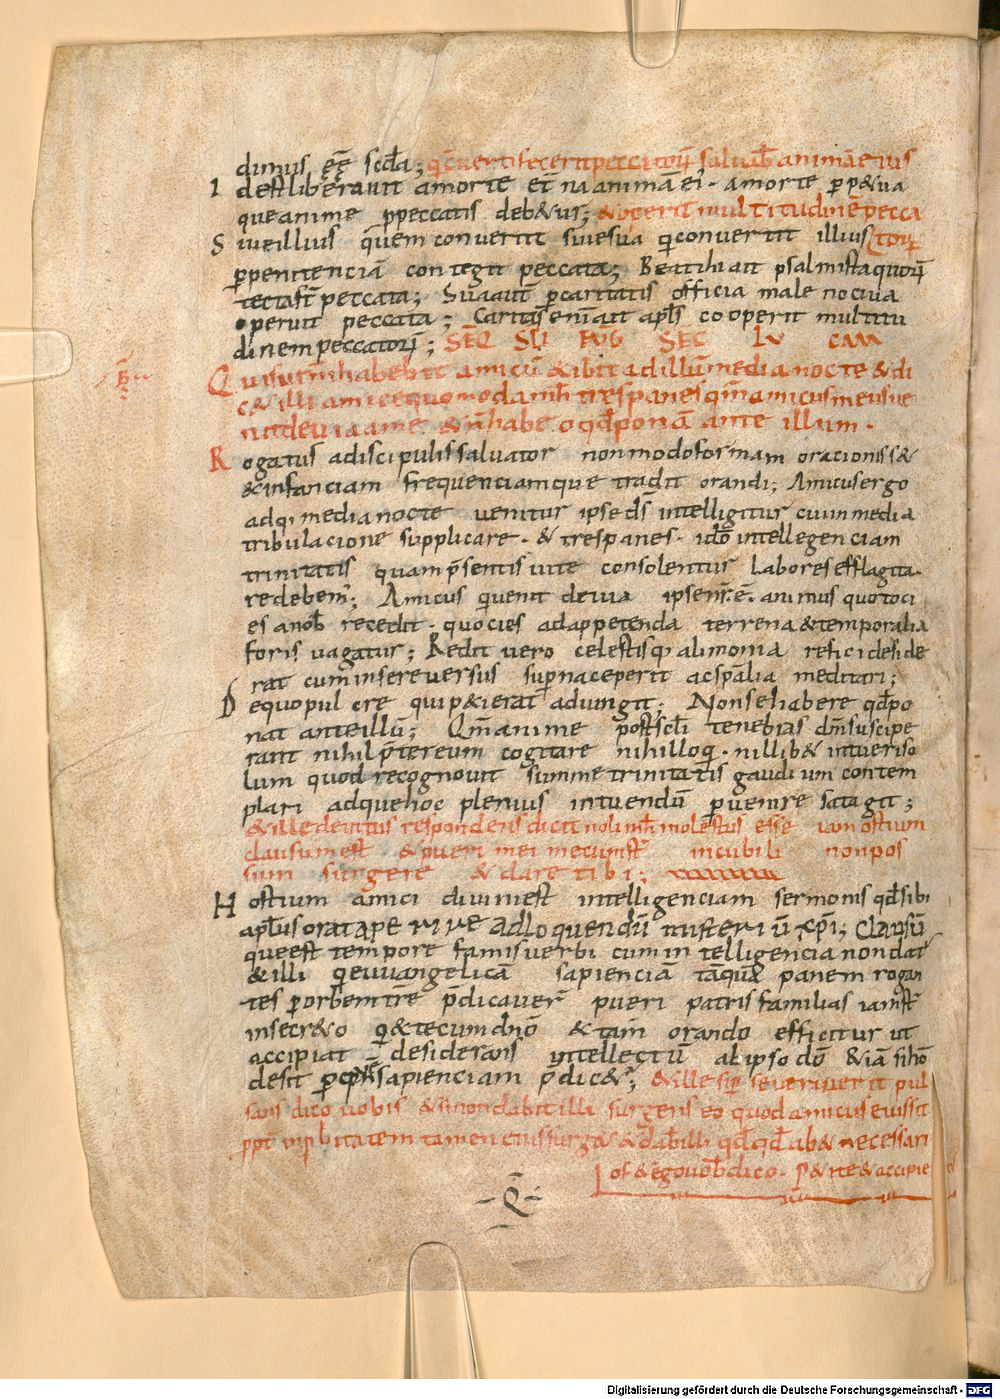 dimus eē scđa; qͥcuertifecerit peccatorē saluab̄ animā eius
I dest liberauit amorte et̄nā animā ei᷒. amorte ꝑp&ua
que anime ꝓpeccatis deb&ur; &operit multitudinē pecca
S iue illius quem conuertit siue sua qͥ conuertit illius torū
ꝑpenitenciā contegit peccata; Beati hi ait psalmista quorū
tecta sт̄ peccata; Sua aut̄ ꝑcaritatis officia male nociua
operuit peccata; Caritas eni᷒ ait apl̄s cooperit multitu
dinem peccatorū; SEQ SCI EVG SEC LV CAM
Q uis urm̄ habebit amicū & ibit ad illū media nocte & di
c& illi amice quomoda m̄h tres panes qm̄ amicus meus ue
nit de uia ad me & n̄ habeo qđ ponā ante illum.
R ogatus a discipulis saluator non modo formam oracionis s&
& infanciam frequenciamque tradit orandi; Amicus ergo
ad qͥ media nocte uenitur ipse ds̄ intelligitur cui in media
tribulacione supplicare. & tres panes. idō intellegenciam
trinitatis quam p̄sentis uite consolentur labores efflagita
re debem᷒; Amicus qͥ uenit de uia ipse nr̄ ē. animus qui totoci
es a nob̄ recedit. quocies ad appetenda terrena & temporalia
foris uagatur; Redit uero celestiqͥ alimonia refici deside
rat cum in se reuersus supͣna ceperit ac spālia meditari;
D e quo pulcre qui p&ierat adiungit; Non se habere qđ po
nat ante illū; Qm̄ anime post scl̄i tenebras dm̄ suscipe
rant nihil p̄ter eum cogitare nihil loqͥ. nil lib& intueri so
lum quod recognouit summe trinitatis gaudium contem
plari adque hoc plenius intuendū ꝑuenire satagit;
& ille deintus respondens dicit noli m̄h molestus esse iam ostium
clausum est & pueri mei mecum sт̄ in cubili non pos
sum surgere & dare tibi;
H ostium amici diuini est intelligenciam sermonis qđ sibi
apl̄us orat aperire ad loquendū misteriū xp̄i; Clausū
que est tempore famis uerbi cum intelligencia non dat᷒
& illi qͥ euuangelicā sapienciā tāquā panem rogan
tes ꝑ orbem tr̄re p̄dicauer̄ pueri patris familias iam sт̄
in secr&o qͥ&e cum dn̄o & tam̄ orando efficitur ut
accipiat desiderans intellectū ab ipso dō & iā si hō
desit ꝑ quē sapienciam p̄dic&᷒; & ille si ꝑseuerauerit pul
sans dico uobis & si non dabit illi surgens eo quod amicus eius sit
ppt̄ inprobitatem tamen eius surg& & dab̄ illi qđqđ hab& necessari
os & ego uob̄ dico. P&ite & accipie
Q
Digitalisierung gefördert durch die Deutsche Forschungsgemeinschaft - DFG